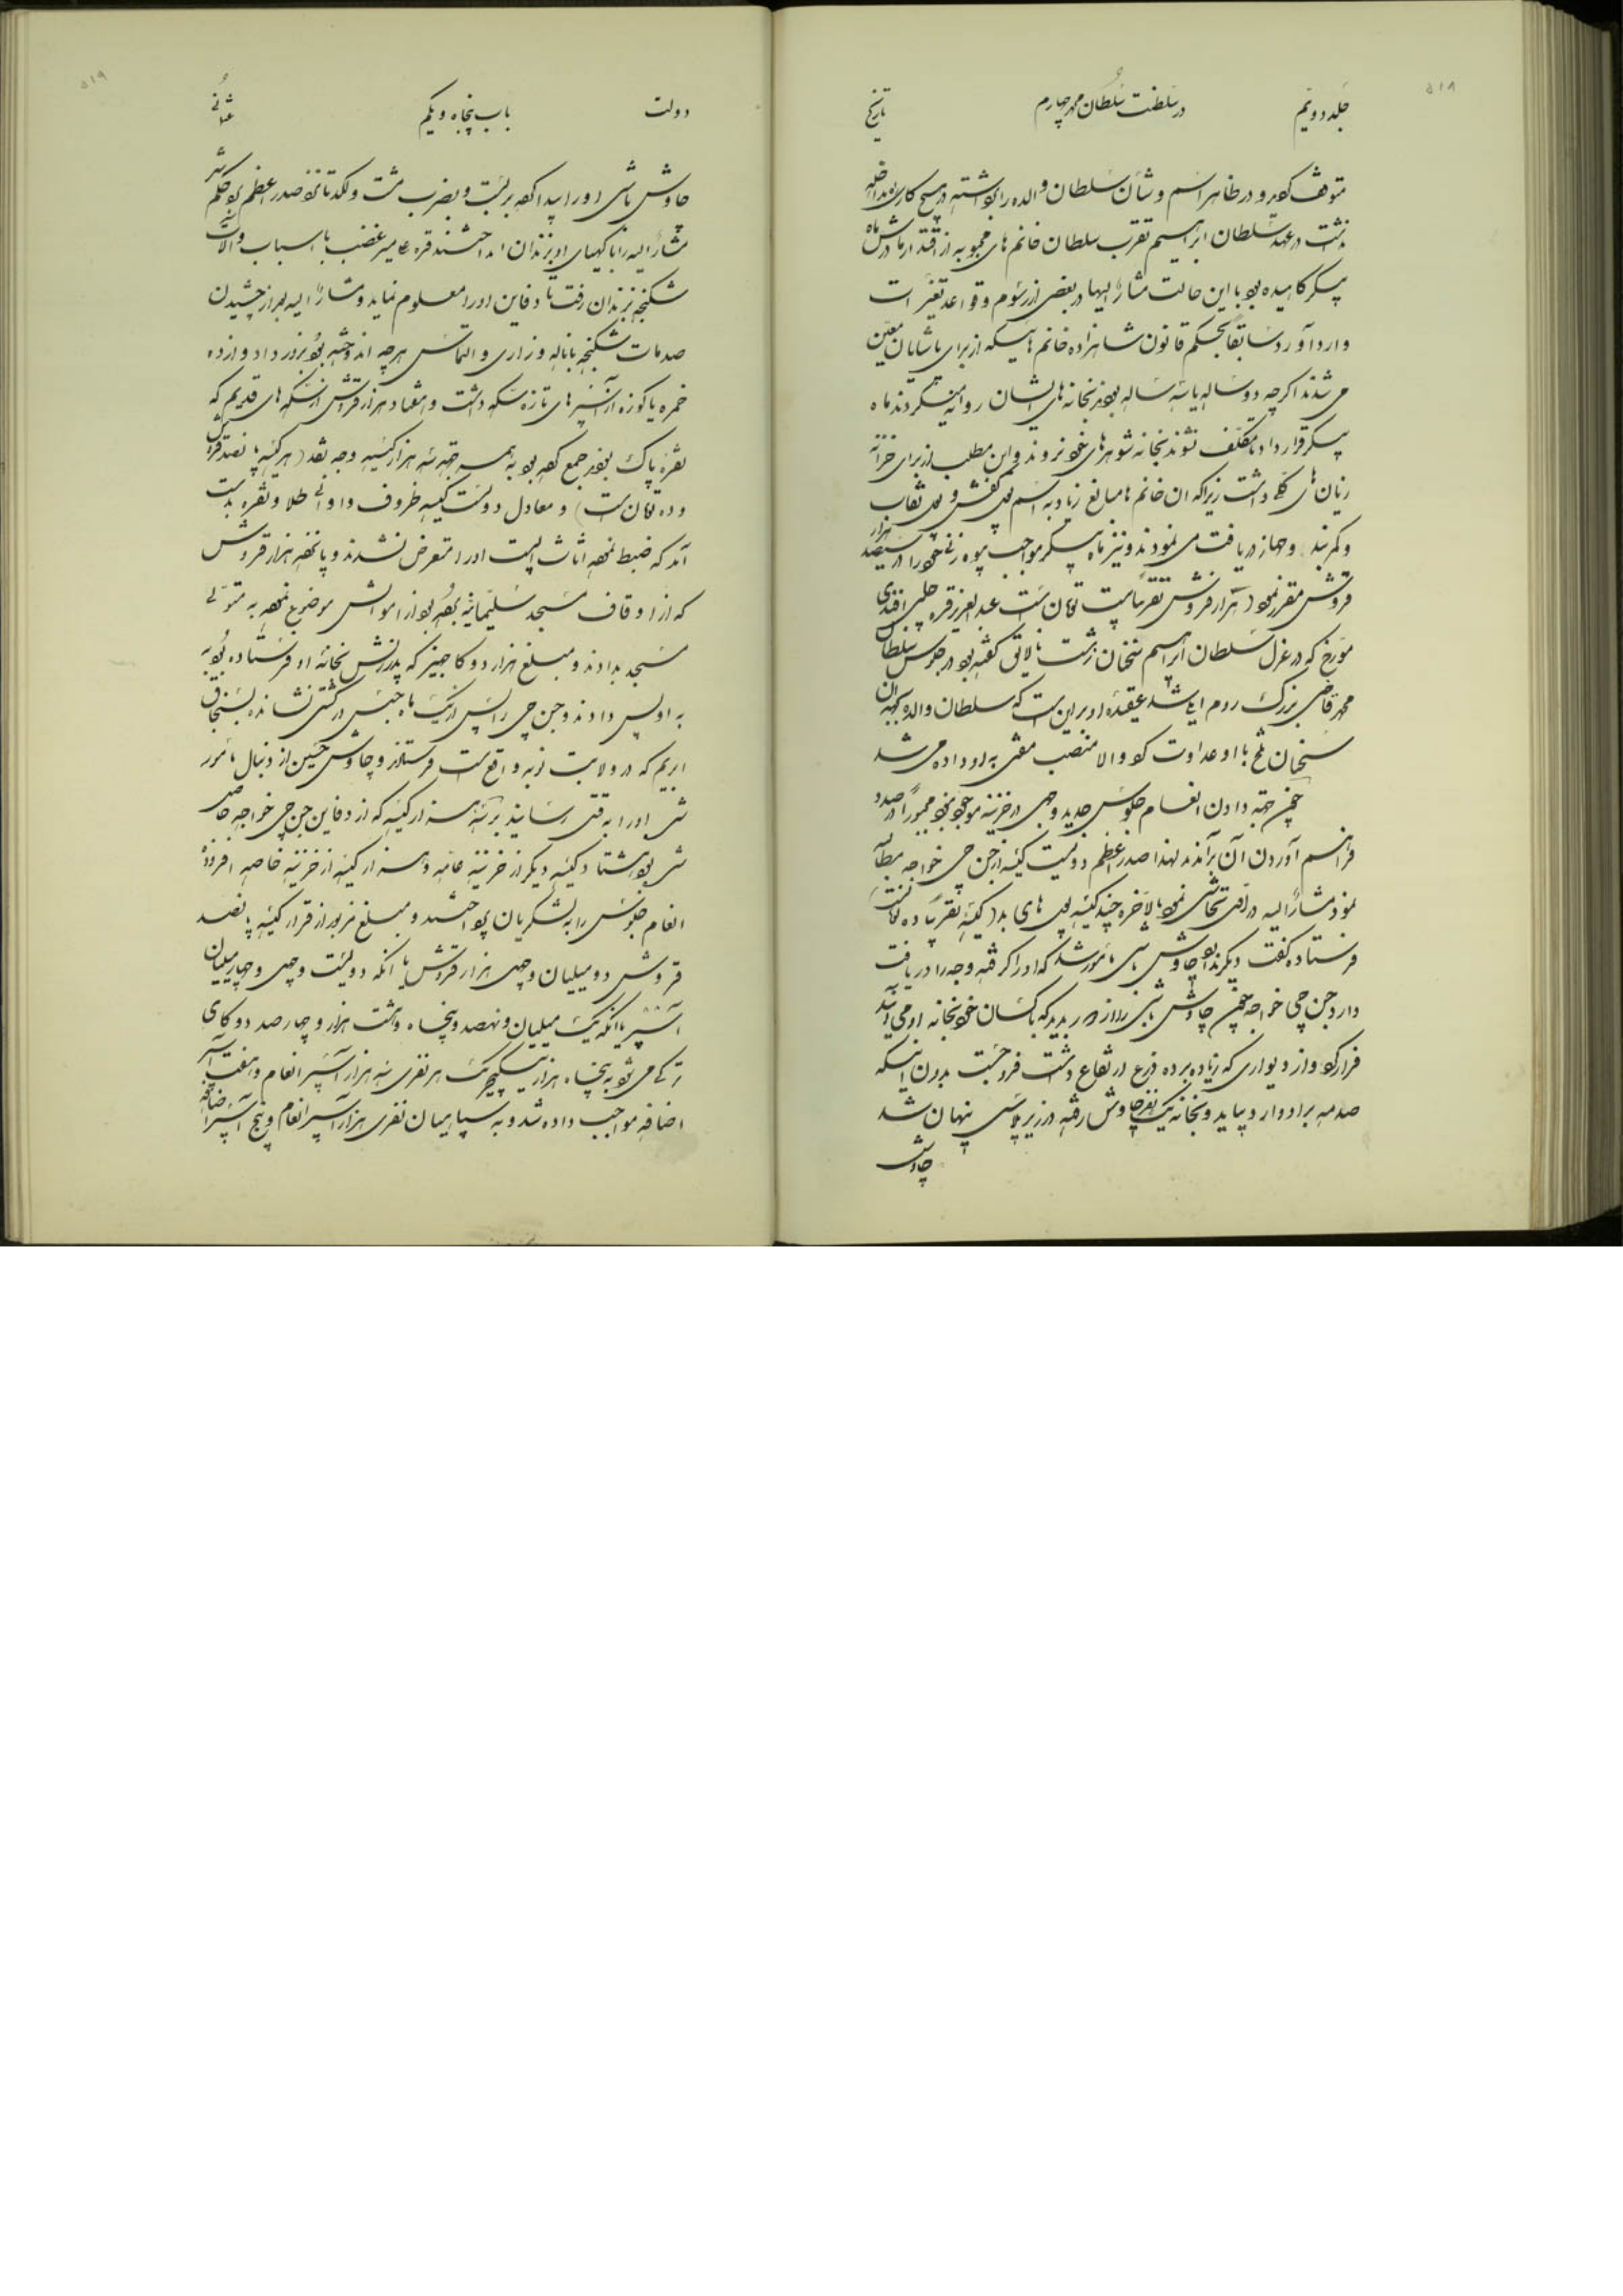 ۵۱۸
جلد دویم
در سلطنت سلطان محمد چهارم
تاریخ
متوقف کرد و در ظاهر اسم و شأن سلطان والده را برداشته در هیچ کاری مداخله
نداشت در عهد سلطان ابراهیم تقرب سلطان خانم های محبوبه از اقتدار مادرش ماه
پیکر کاهیده بود با این حالت مشارٌالیها در بعضی از رسوم و قواعد تغییرات
وارد آورد سابقاً بحکم قانون شاهزاده خانم هائیکه از برای پاشایان معین
می شدند اگرچه دو ساله یا سه ساله بودند بخانه های ایشان روانه میکردند ماه
پیکر قرار داد تا مکلف نشوند بخانه شوهرهای خود نروند و این مطلب از برای خزانه
زیان های کلی داشت زیرا که ان خانم ها مبالغ زیاد به اسم پول کفش و پول نقاب
و کمربند و جهاز دریافت می نمودند و نیز ماه پیکر مواجب بیوه زنی خود را در سیصد هزار
قروش مقرر نمود (هزار قروش تقریباً بیست تومان است) عبدالعزیز قره چلبی افندی
مورخ که در عزل سلطان ابراهیم سخنان زشت نالایق گفته بود در جلوس سلطان
محمد قاضی بزرگ روم ایلی شد عقیده او بر این است که سلطان والده بجهة ان
سخنان تلخ با او عداوت کرد والا منصب مفتی به او داده می شد
چون جهة دادن انعام جلوس جدید وجهی در خزینه موجود نبود مجبوراً در صدد
فراهم آوردن آن برآمدند لهذا صدر اعظم دویست کیسه از جن جی خواجه مطالبه
نمود مشارٌالیه در اول تحاشی نمود بالاخره چند کیسه پول های بد (کیسه تقریباً ده تومانست)
فرستاده گفت دیگر ندارد چاوش باشی مأمور شد که او را گرفته وجه را دریافت
دارد جن جی خواجه چون چاوش باشی را از دور بدید که با کسان خود بخانه او می آید
فرار کرد و از دیواری که زیاده بر ده ذرع ارتفاع داشت فرو جست بدون اینکه
صدمه بر او وارد بیاید و بخانه یک نفر چاوش رفته در زیر پلاسی پنهان شد
چاوش
۵۱۹
دولت
باب پنجاه و یکم
عثمانی
چاوش باشی او را پیدا کرده بر بست و بضرب مشت و لکد تا نزد صدر اعظم برد حکم شد
مشارٌالیه را با کهیای او بزندان انداختند قره علی میر غضب با اسباب و آلات
شکنجه بزندان رفت تا دفاین او را معلوم نماید و مشارٌالیه بعد از چشیدن
صدمات شکنجه با ناله و زاری و التماس هرچه اندوخته بود بروز داد دوازده
خمره یا کوزه از آسپرهای تازه سکه داشت و هشتاد هزار قروش از سکه های قدیم که
نقره پاک بود جمع کرده بود به همه جهة سه هزار کیسه وجه نقد (هر کیسه پانصد قروش
و ده تومان است) و معادل دویست کیسه ظروف و اوانی طلا و نقره بدست
آمد که ضبط نمودند اثاث البیت او را متعرض نشدند و پانزده هزار قروش
که از اوقاف مسجد سلیمانیه برده بود از اموالش موضوع نموده به متولی
مسجد بدادند و مبلغ هزار دوکا جهیز که پدر زنش بخانهٔ او فرستاده بود
به او پس دادند و جن جی را پس از یک ماه حبس در کشتی نشانده بسنجاق
ابریم که در ولایت نوبه واقع است فرستادند و چاوش حسین از دنبال مأمور
شد او را به قتل رسانید بر سه هزار کیسه که از دفاین جن جی خواجه حاصل
شد بود هشتاد کیسه دیگر از خزینه عامه و هزار کیسه از خزینه خاصه افزوده
انعام جلوس را به لشکریان پرداختند و مبلغ مزبور از قرار کیسه پانصد
قروش دو میلیان و چهل هزار قروش یا انکه دویست و چهل و چهار میلیان
آسپر یا انکه یک میلیان و نهصد و پنجاه و هشت هزار و چهار صد دوکای
ترکی می شود به پنجاه هزار ینکچریک هر نفری سه هزار آسپر انعام و هفت آسپر
اضافه مواجب داده شد و به سپاهیان نفری هزار آسپر انعام و پنج آسپر اضافه